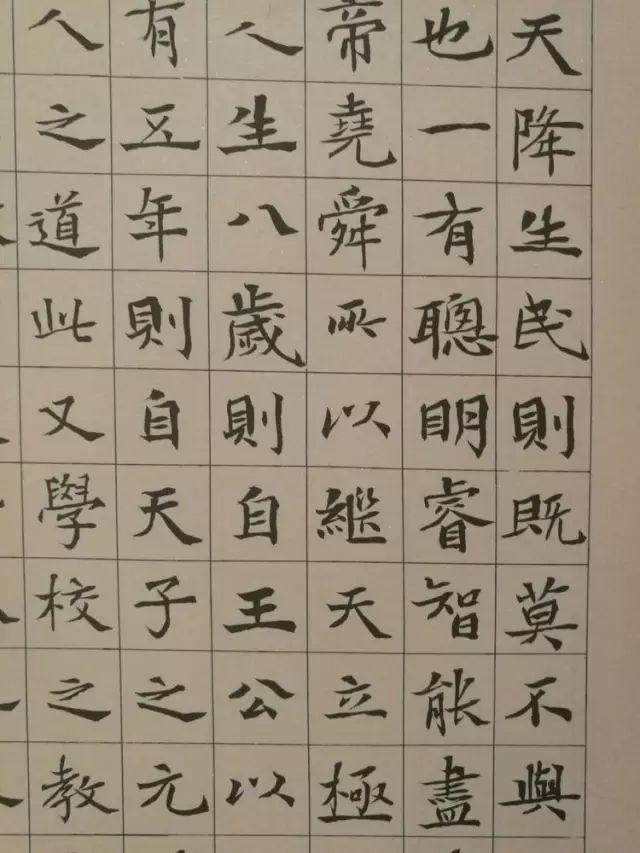 天降生民則既莫不與
也一有聰明睿智能盡
帝堯舜所以繼天立極
人生八歲則自王公以
有五年則自天子之元
人之道此又學校之教